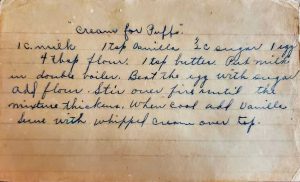 "Cream for Puffs"
1 c. milk 1 tsp vanilla ½ c sugar 1 egg
4 tbsp flour. 1 tsp butter. Put milk
in double boiler. Beat the egg with sugar
add flour. Stir over fire until the
mixture thickens. When cool add vanilla
Serve with whipped cream over top.